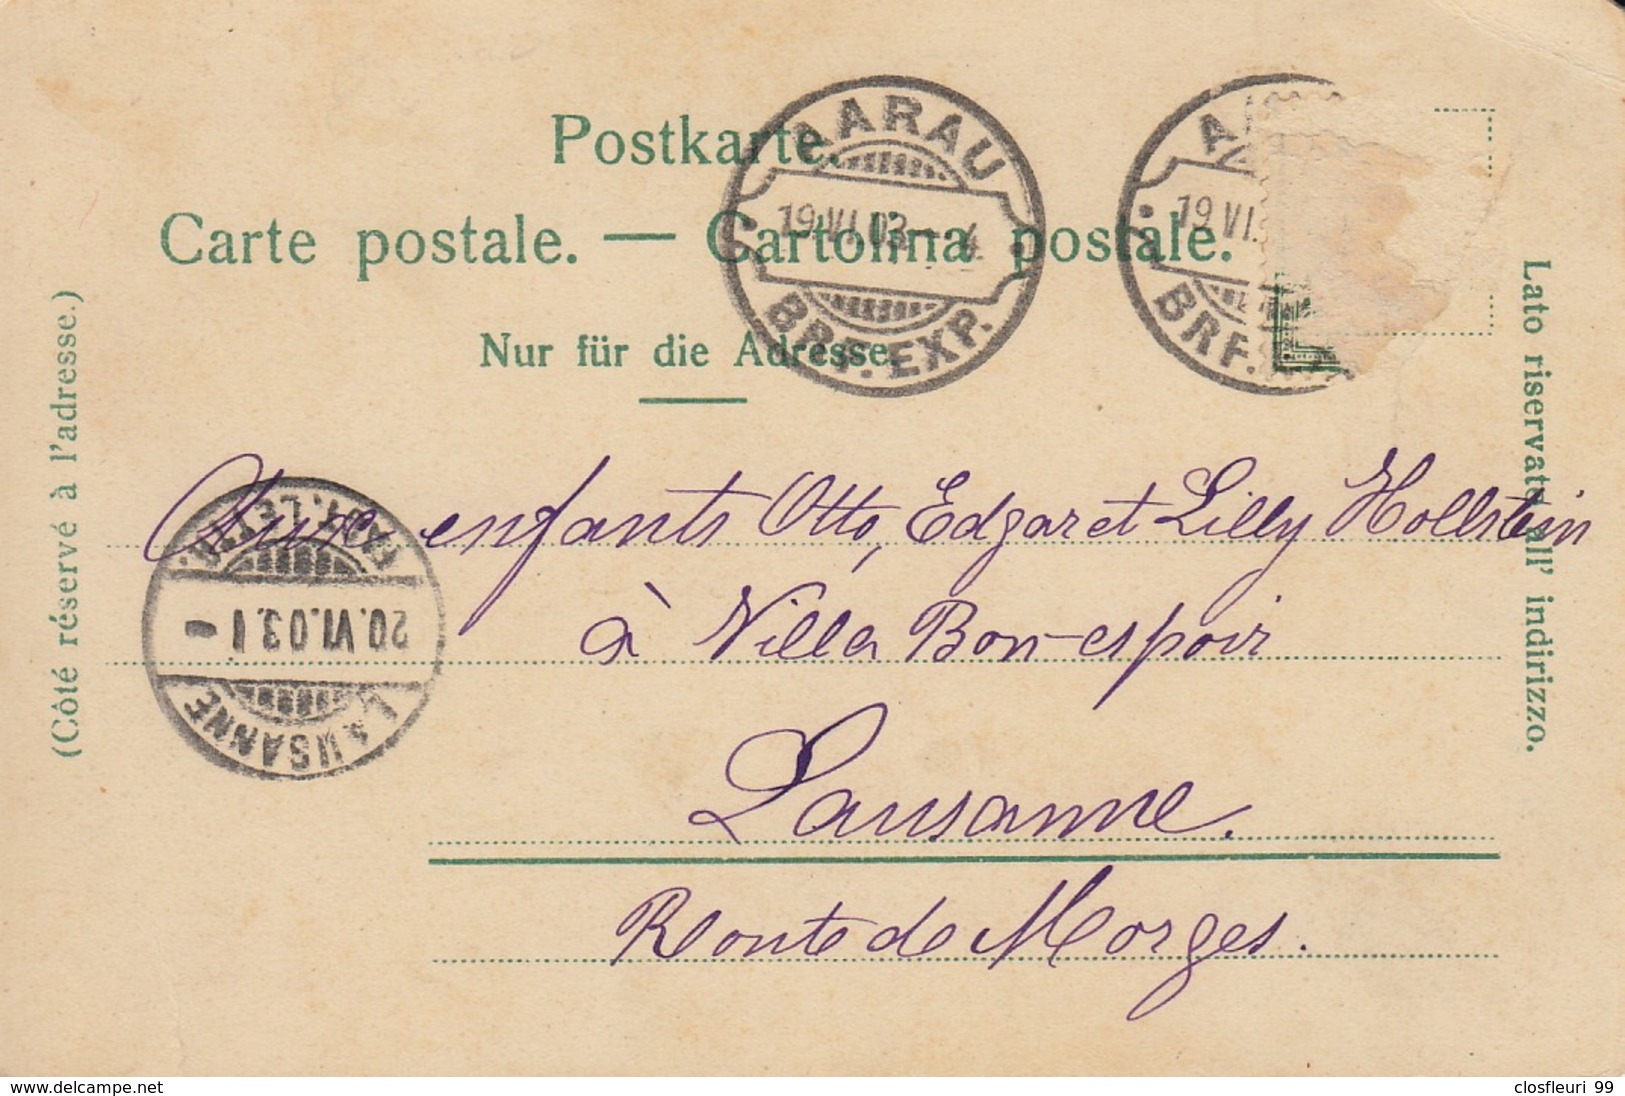 Postkarte.
Carte postale. — Cartolina postale.
Nur für die Adresse.
(Côté réservé à l'adresse.)
Lato riservato all' indirizzo.
AARAU
19.VI.03 – 4
BRF. EXP.
AA
19 VI.
BRF.
Aux enfants Otto, Edgar et Lilly Hollstein
à Villa Bon-espoir
Lausanne.
Route de Morges.
LAUSANNE
20.VI.03.I –
www.delcampe.net
closfleuri 99